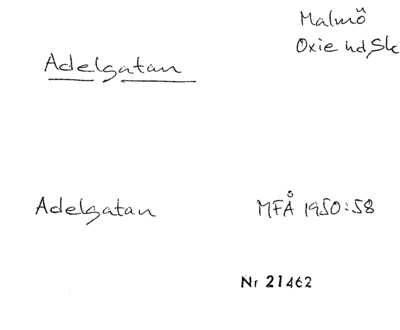 Malmö
Oxie hd, Sk
Adelgatan
Adelgatan MFÅ 1950:58
Nr 21462